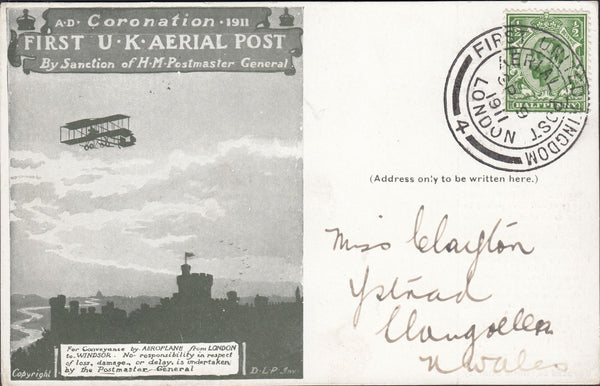 A·D· Coronation · 1911
FIRST U·K·AERIAL POST
By Sanction of H·M·Postmaster General
For Conveyance by AEROPLANE from LONDON
to WINDSOR. No responsibility in respect
of loss, damage, or delay, is undertaken
by the Postmaster General
Copyright
D·L·P Inv.
FIRST UNITED KINGDOM
AERIAL POST
LONDON
1911
4
HALFPENNY
(Address only to be written here.)
Miss Clayton
Ystrad
Llangollen
N Wales